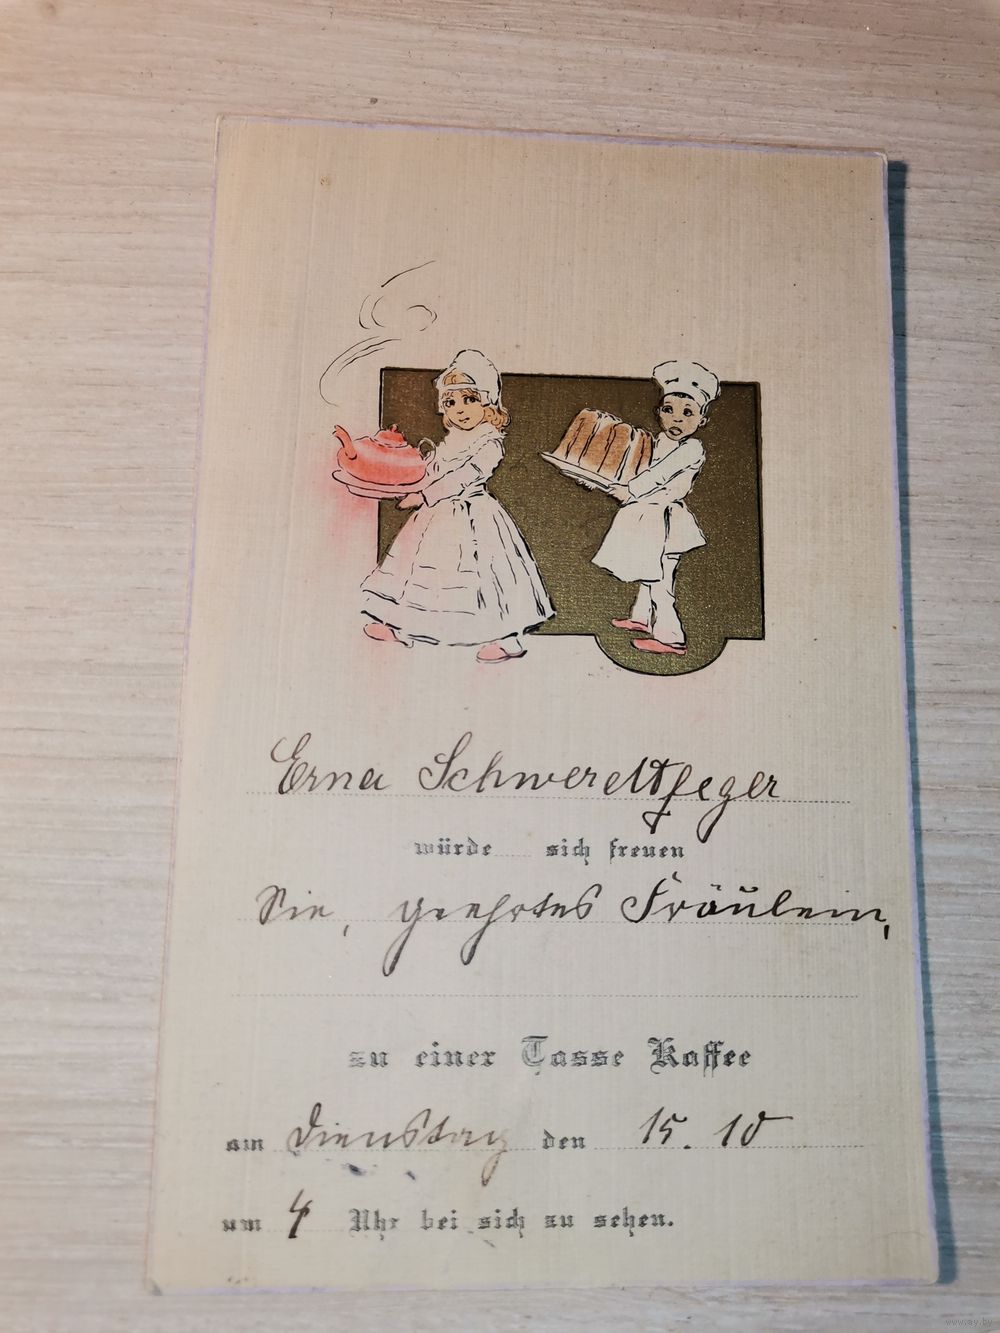 Erna Schwerdtfeger
würde sich freuen
Sie, geehrtes Fräulein,
zu einer Tasse Kaffee
am Dienstag den 15. 10
um 4 Uhr bei sich zu sehen.
www.ay.by